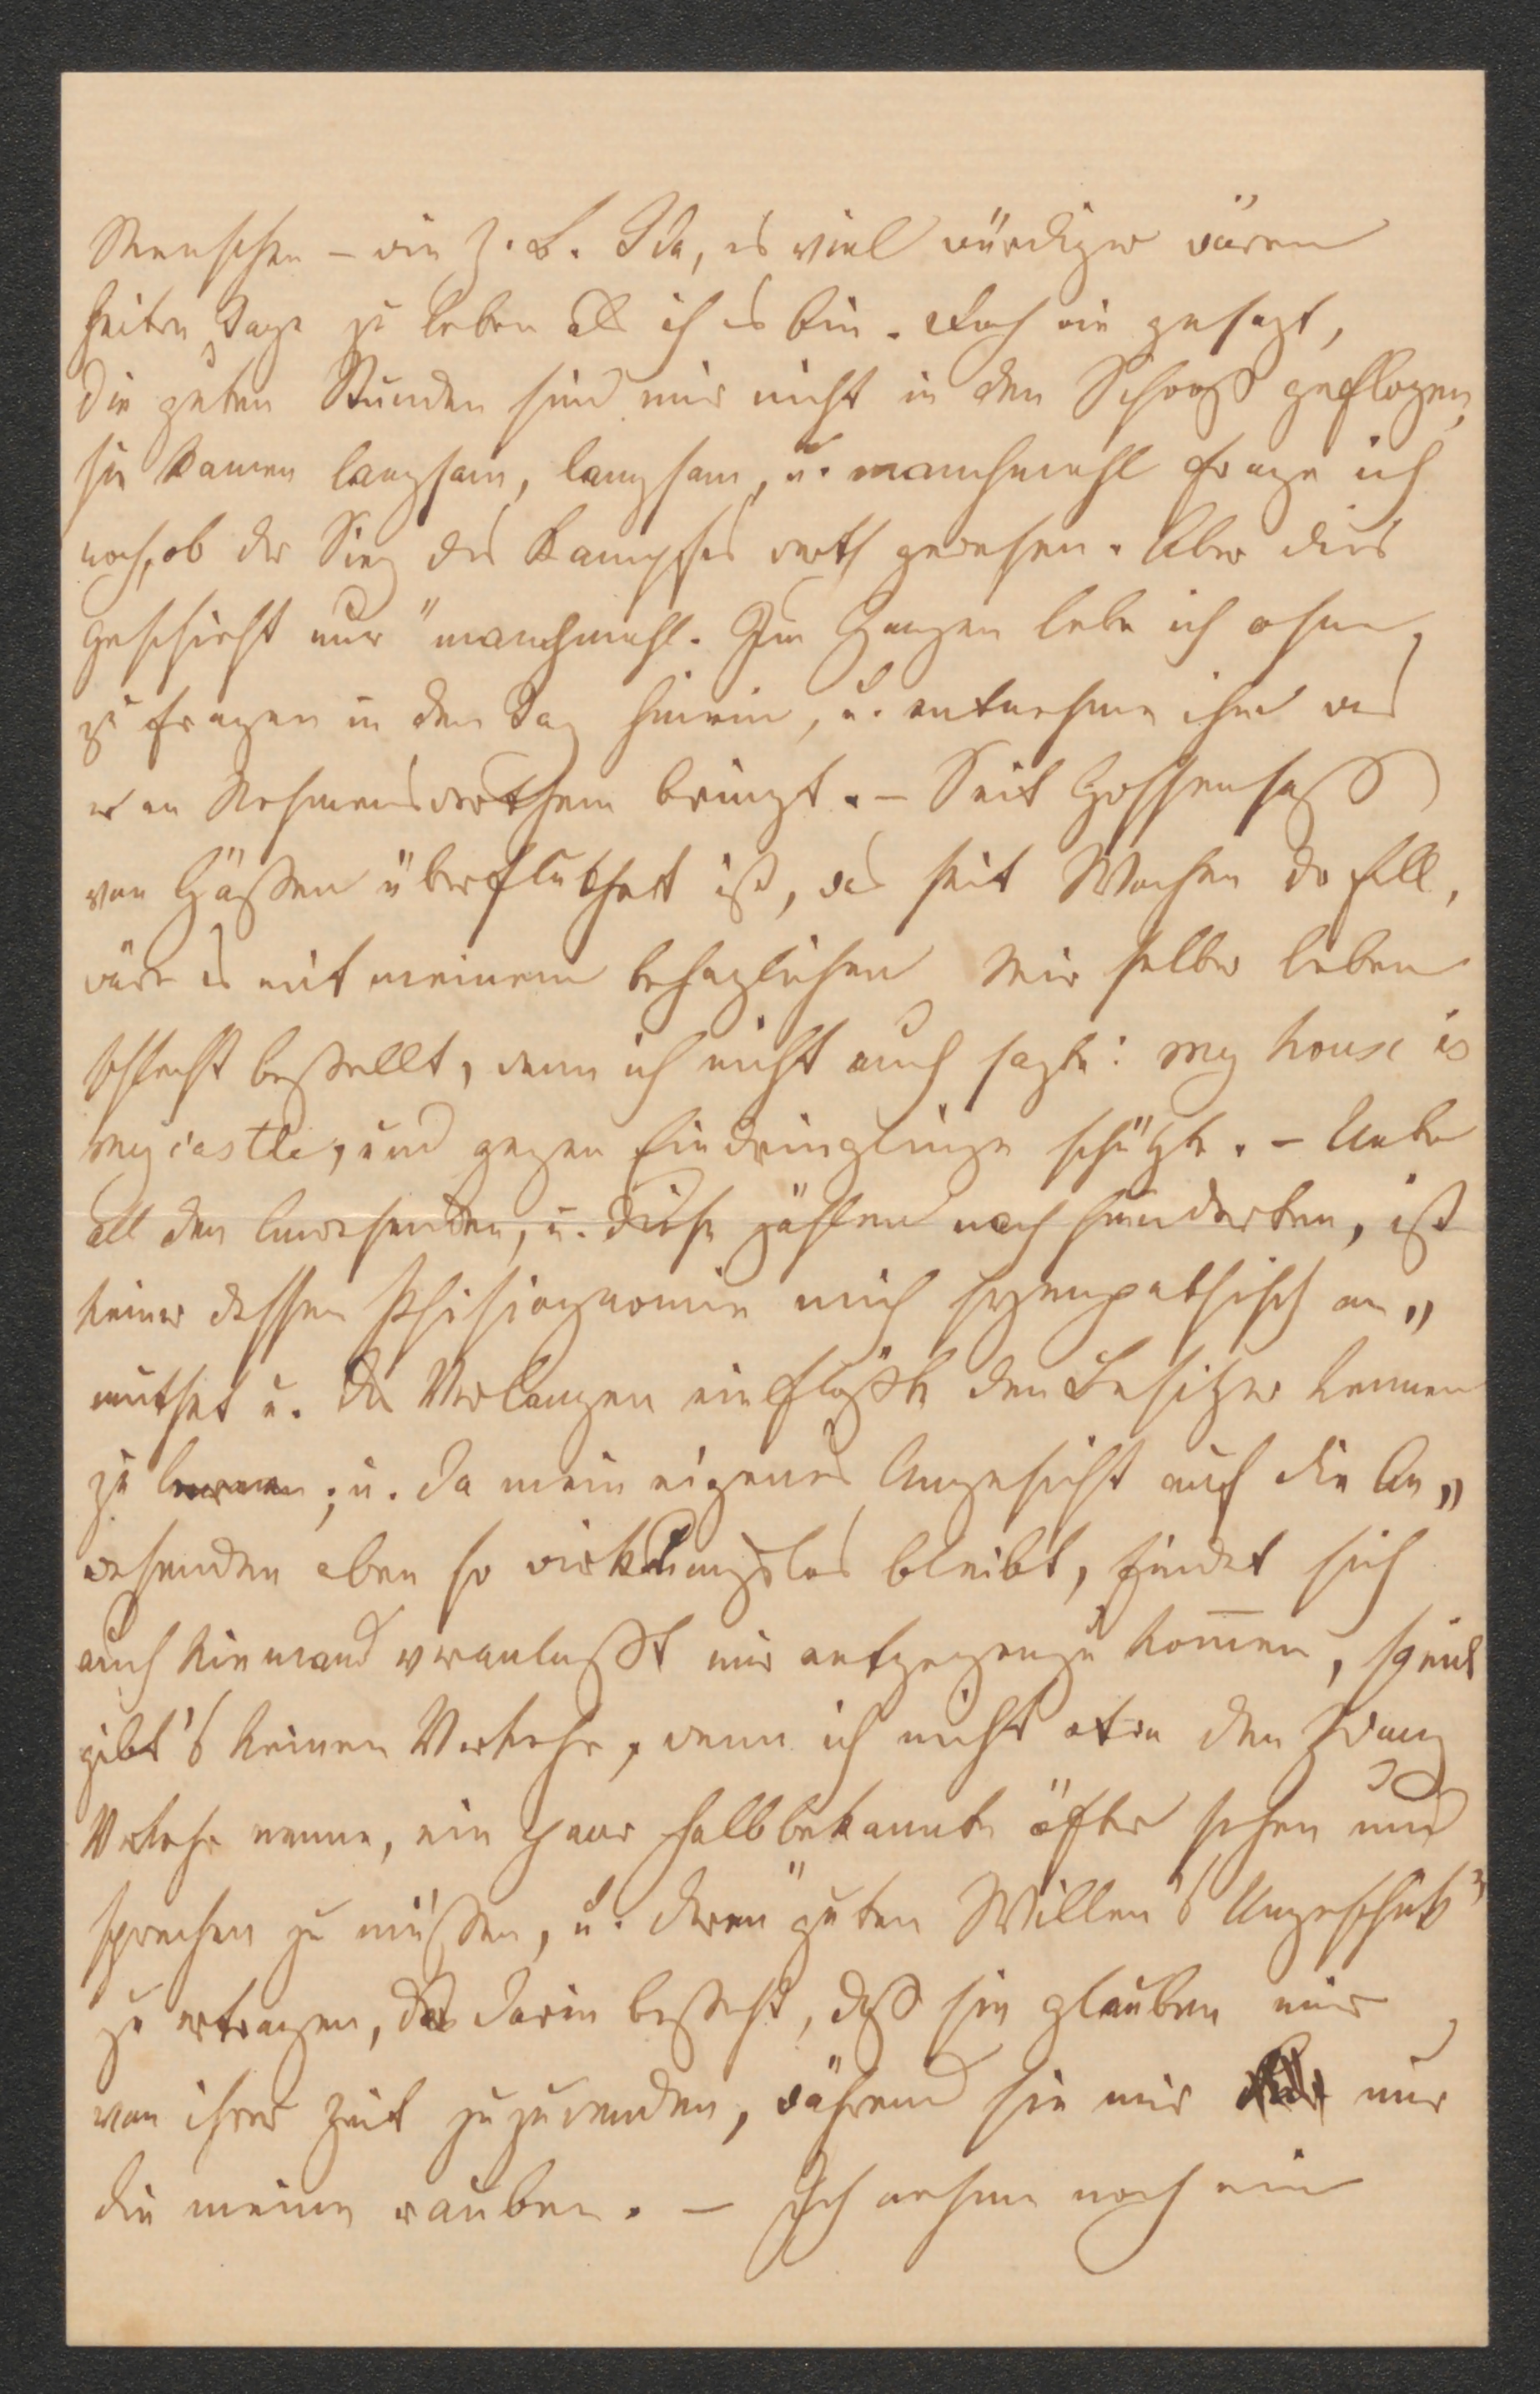 Menschen – wie z. B. Ida, es viel würdiger wären
heitre Tage zu leben als ich es bin. Doch wie gesagt,
die guten Stunden sind mir nicht in den Schooß geflogen,
sie kamen langsam, langsam, u. manchmahl frage ich
noch, ob der Sieg des Kampfes werth gewesen. Aber dies
geschieht nur "manchmahl. Im Ganzen lebe ich ohne,
zu fragen in den Tag hinein, u. entnehme ihm was
er an Nehmenswerthem bringt. – Seit Gossensaß
von Gästen überfluthet ist, was seit Wochen der Fall,
wäre es mit meinem behaglichen Mir selber leben
schlecht bestellt, wenn ich nicht auch sagte: my house is
my castle, und gegen Eindringlinge schützte. – Unter
all den Anwesenden, u. diese zählen nach hunderten, ist
keiner dessen Phisiognomie mich sympathisch an„
muthet u. das Verlangen einflößte den Besitzer kennen
zu lernen; u. da mein eigenes Angesicht auf die An„
wesenden eben so wirkungslos bleibt, findet sich
auch Niemand veranlaßt mir entgegenzukom̅en, somit
gibt's keinen Verkehr, wenn ich nicht etwa den Zwang
Verkehr nenne, ein paar halbbekannte öfter sehen und
sprechen zu müssen, u. deren "guten Willen's Ungeschick"
zu ertragen, das darin besteht, daß sie glauben mir
von ihrer Zeit zuzuwenden, während sie mir nur
die meine rauben. – Ich nehme noch ein